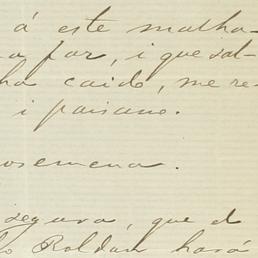 á este malha-
a por, i que sal-
ha caido, me re-
i paisano.
osemena.
segura, que el
Roldan hará